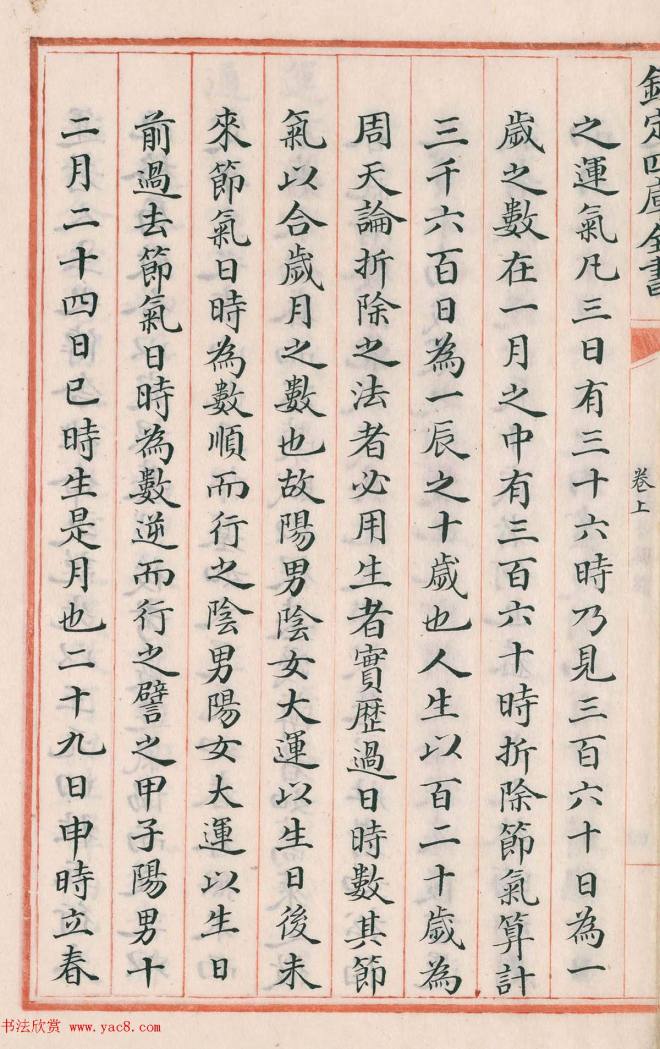 欽定四庫全書
卷上
之運氣凡三日有三十六時乃見三百六十日為一
歲之數在一月之中有三百六十時折除節氣算計
三千六百日為一辰之十歲也人生以百二十歲為
周天論折除之法者必用生者實歷過日時數其節
氣以合歲月之數也故陽男陰女大運以生日後未
來節氣日時為數順而行之陰男陽女大運以生日
前過去節氣日時為數逆而行之譬之甲子陽男十
二月二十四日巳時生是月也二十九日申時立春
书法欣赏 www.yac8.com